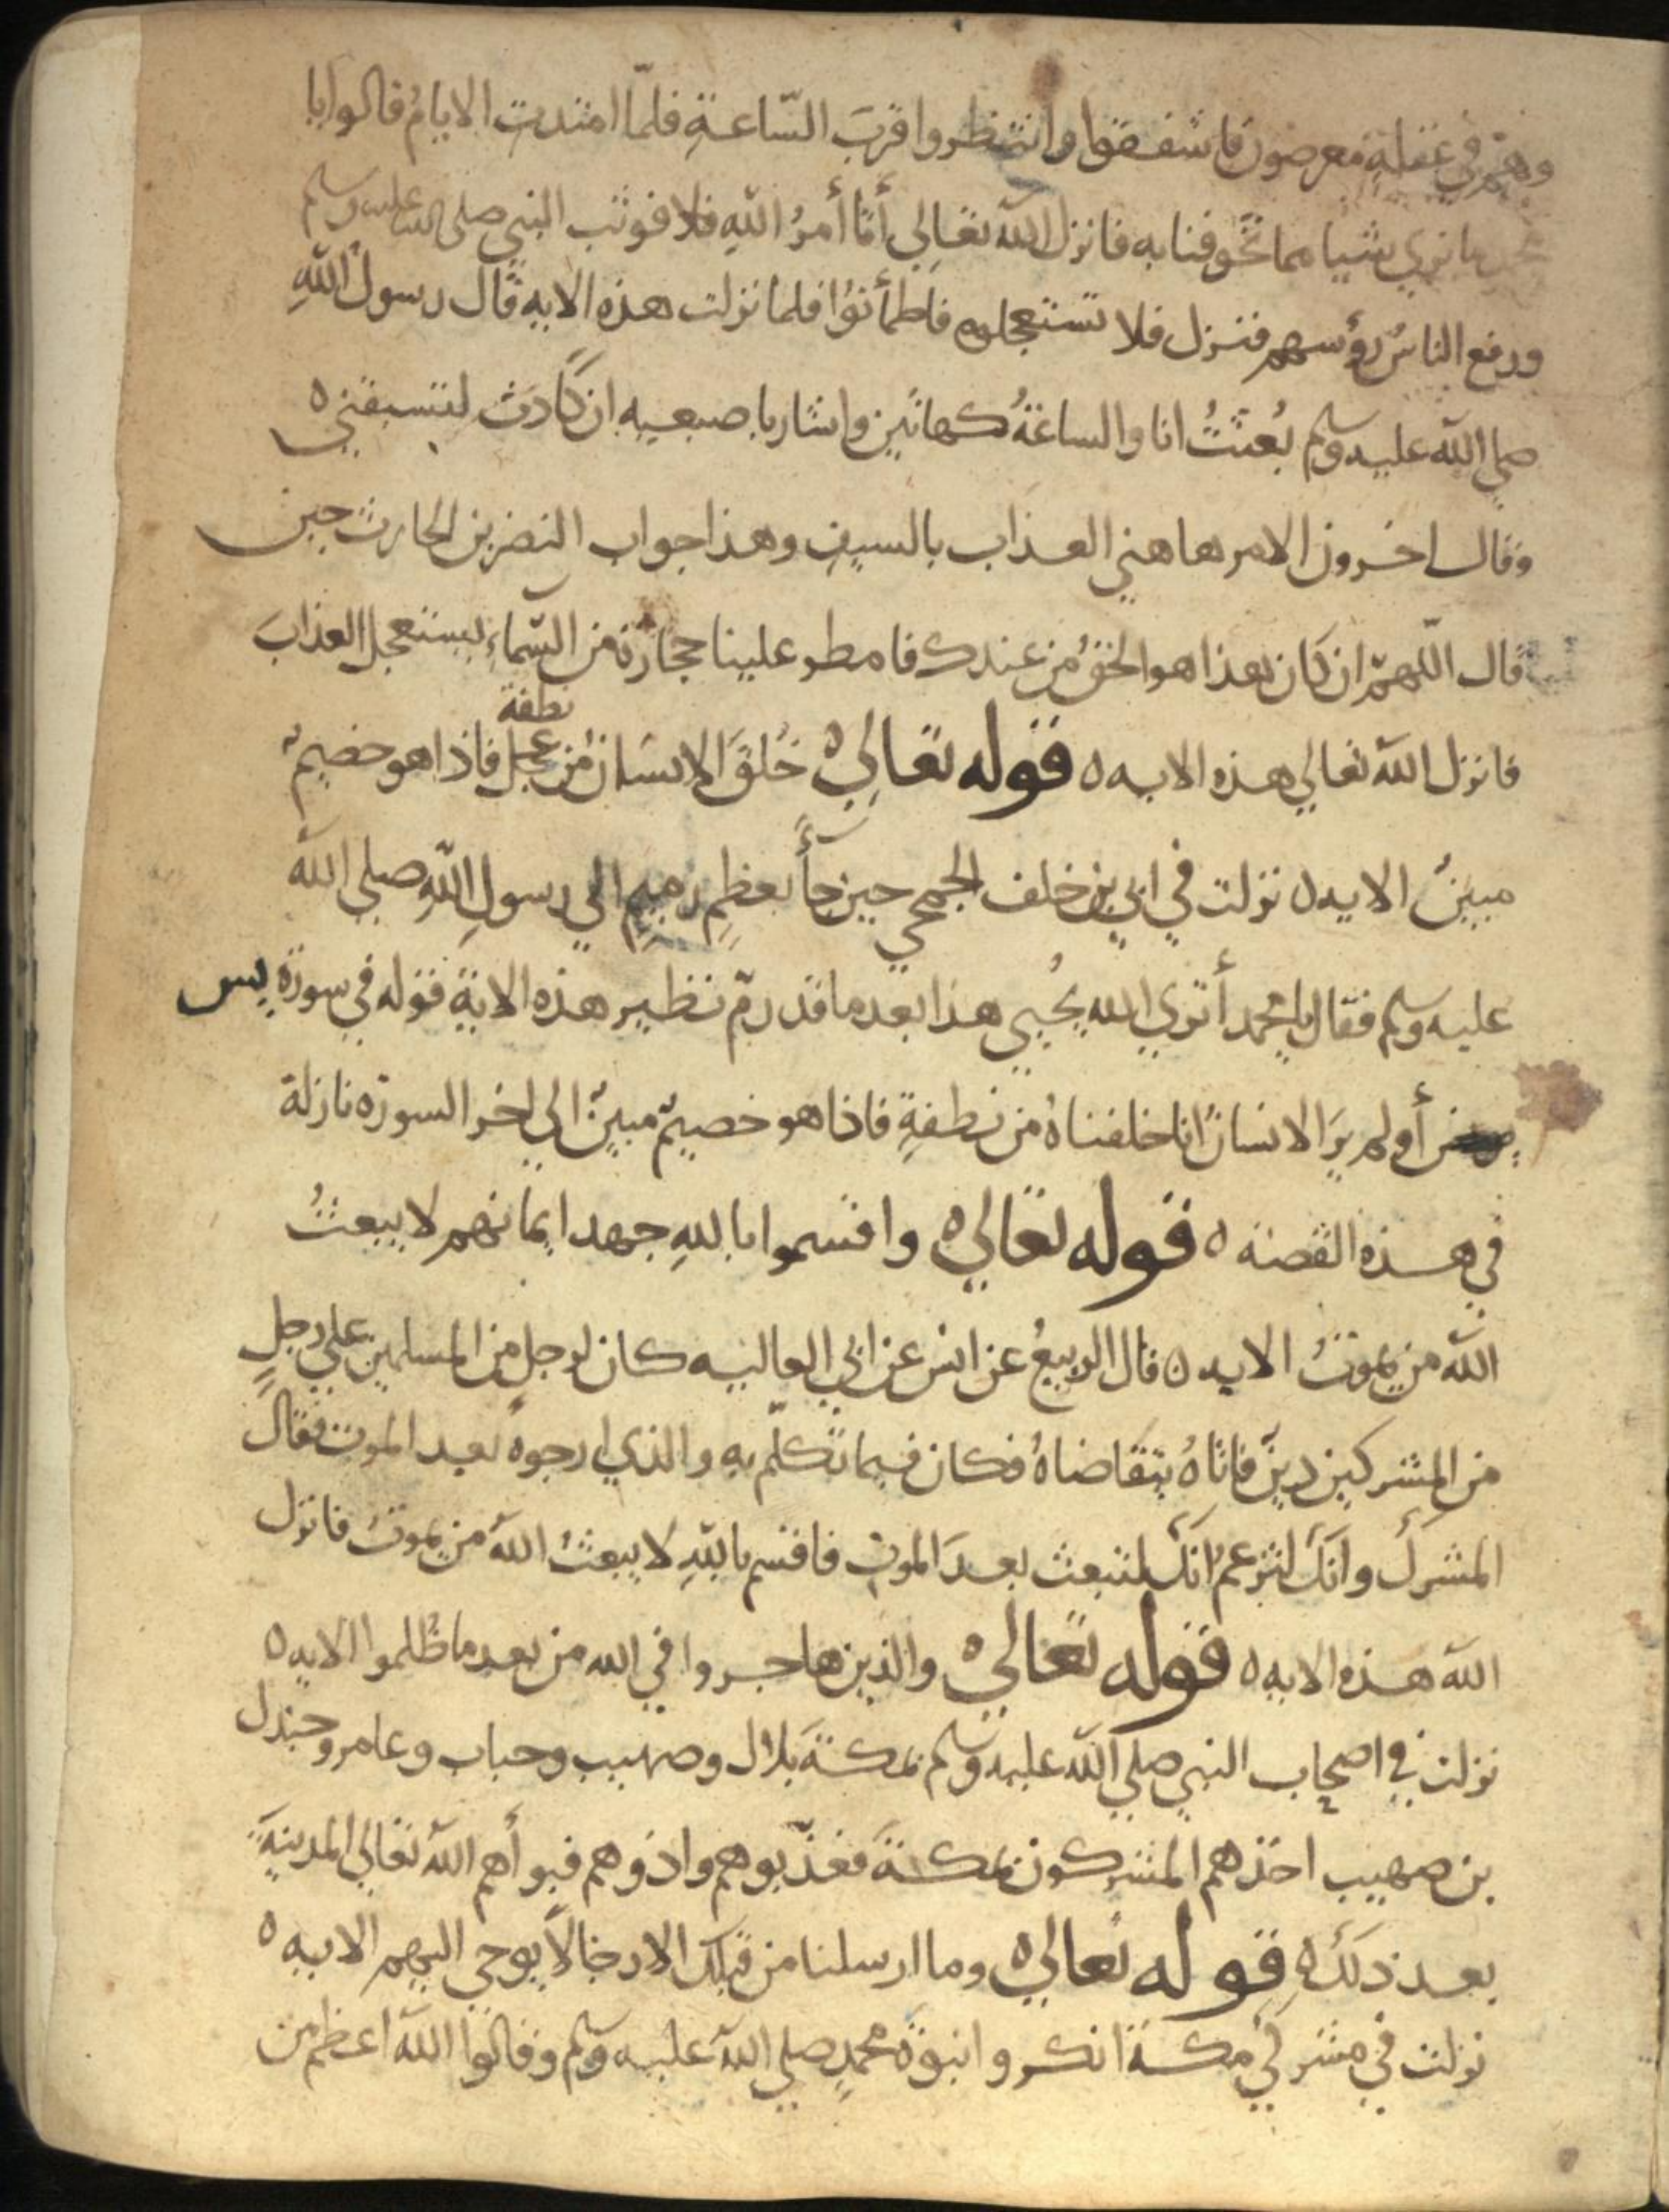 وهم في غفلةٍ معرضون فاشفقوا وانتظروا قربَ السّاعةِ فلمّا امتدتِ الايامُ قالوا يا
محمد ما نري شيا مما تخوفنا به فانزل الله تعالي أتا أمرُ اللهِ فلا فوثب النبي صلى الله عليه وسلم
ورفع الناسُ رؤسهم فنزل فلا تستعجلوه فاطمأنوا فلما نزلت هذه الايه قال رسول اللهِ
صلي الله عليه وسلم بُعثتُ انا والساعةُ كهاتين واشار باصبعيه ان كادَت لتسبقني ٥
وقال اخرون الامر هاهني العذاب بالسيف وهذا جواب النضر بن الحارث حين
قال اللهمّ ان كان هذا هو الحقُ من عندك فامطر علينا حجارة من السّماءِ يستعجل العذابَ
فانزل الله تعالي هذه الايه ٥ قوله تعالي ٥ خُلقَ الانسَانُ من عجل نطفة فاذا هو خصيمٌ
مبينٌ الايه ٥ نزلت في ابي بن خلف الجمحي حين جأ بعظمٍ رميمٍ الي رسولِ اللهِ صلي الله
عليه وسلم فقال يا محمد أتري الله يُحيي هذا بعد ما قد رمّ نظير هذه الاية قوله في سورة يس
أولم يرَ الانسانُ انا خلقناهُ من نطفةٍ فاذا هو خصيمٌ مبينٌ الي اخر السورة نازلة
في هذه القصة ٥ قوله تعالي ٥ واقسموا باللهِ جهد ايمانهم لا يبعثُ
الله من يموتُ الايه ٥ قال الربيعُ عن انس عن ابي العاليه كان لرجلٍ من المسلمين علي رجلٍ
من المشركين دينٌ فاتاهُ يتقاضاهُ فكان فيما تكلّم به والذي ارجوه بعد الموت فقال
المشركُ وانكَ لتزعمُ انكَ لتبعث بعدَ الموتِ فاقسم باللهِ لا يبعثُ الله من يموتُ فانزل
الله هذه الايه ٥ قوله تعالي ٥ والذين هاجروا في الله من بعد ما ظُلموا الايه ٥
نزلت في اصحاب النبي صلي الله عليه وسلم بمكةَ بلال وصهيب وخباب وعامر وجندل
بن صهيب اخذهم المشركون بمكةَ فعذّبوهم واذوهم فبوأهم الله تعالي المدينةَ
بعد ذلكَ ٥ قوله تعالي ٥ وما ارسلنا من قبلك الا رجالاً يوحي اليهم الايه ٥
نزلت في مشركي مكة انكروا نبوة محمدٍ صلي الله عليه وسلم وقالوا الله اعظم من